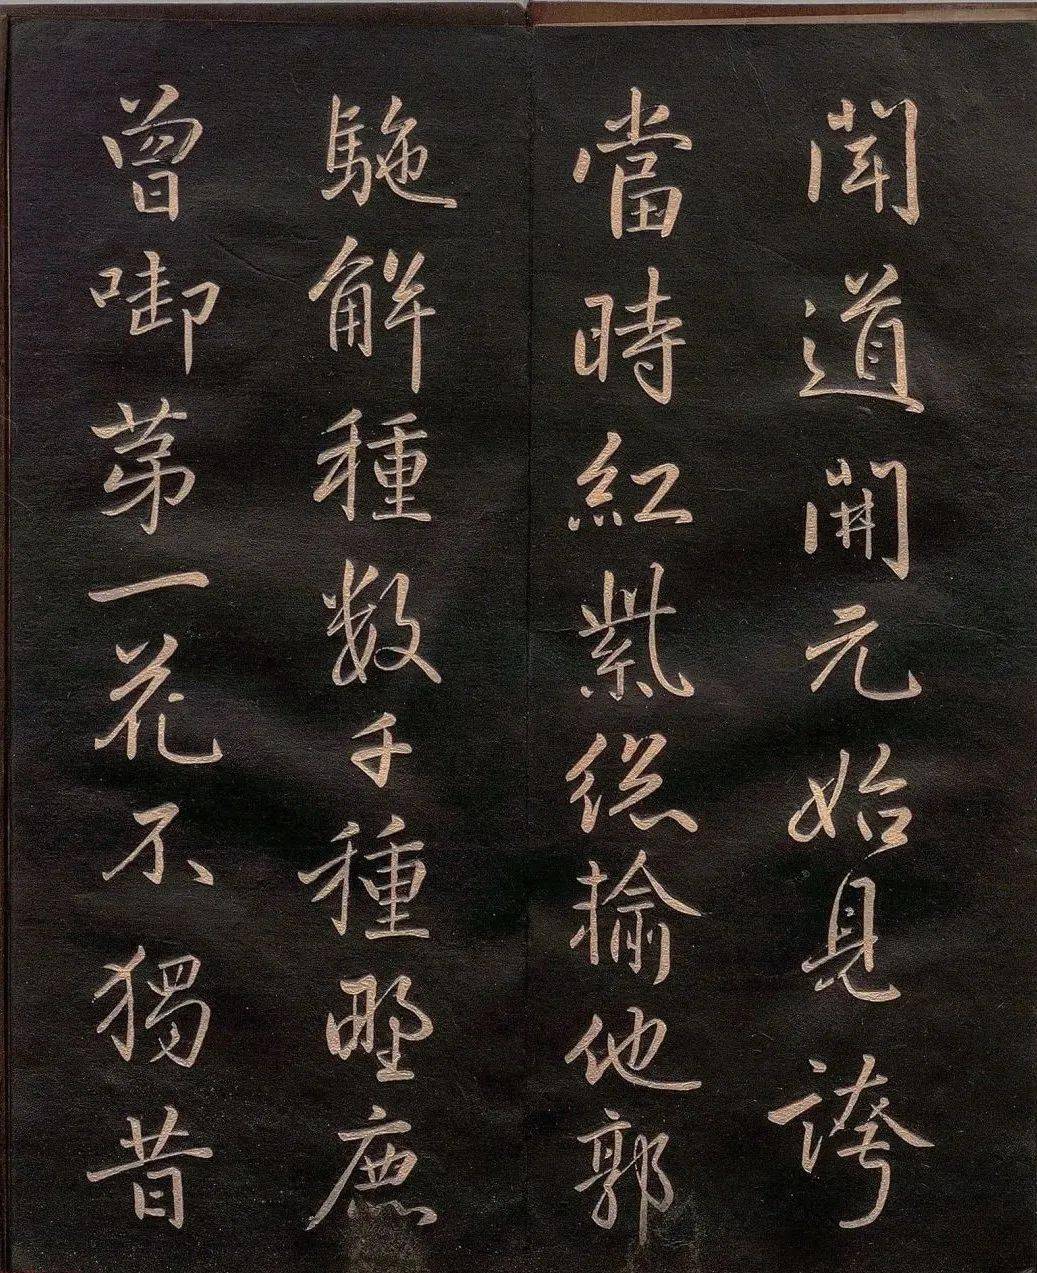 聞道開元始見誇
當時紅紫總揄他郭
駞解種數千種野鹿
曾啣苐一花不獨昔